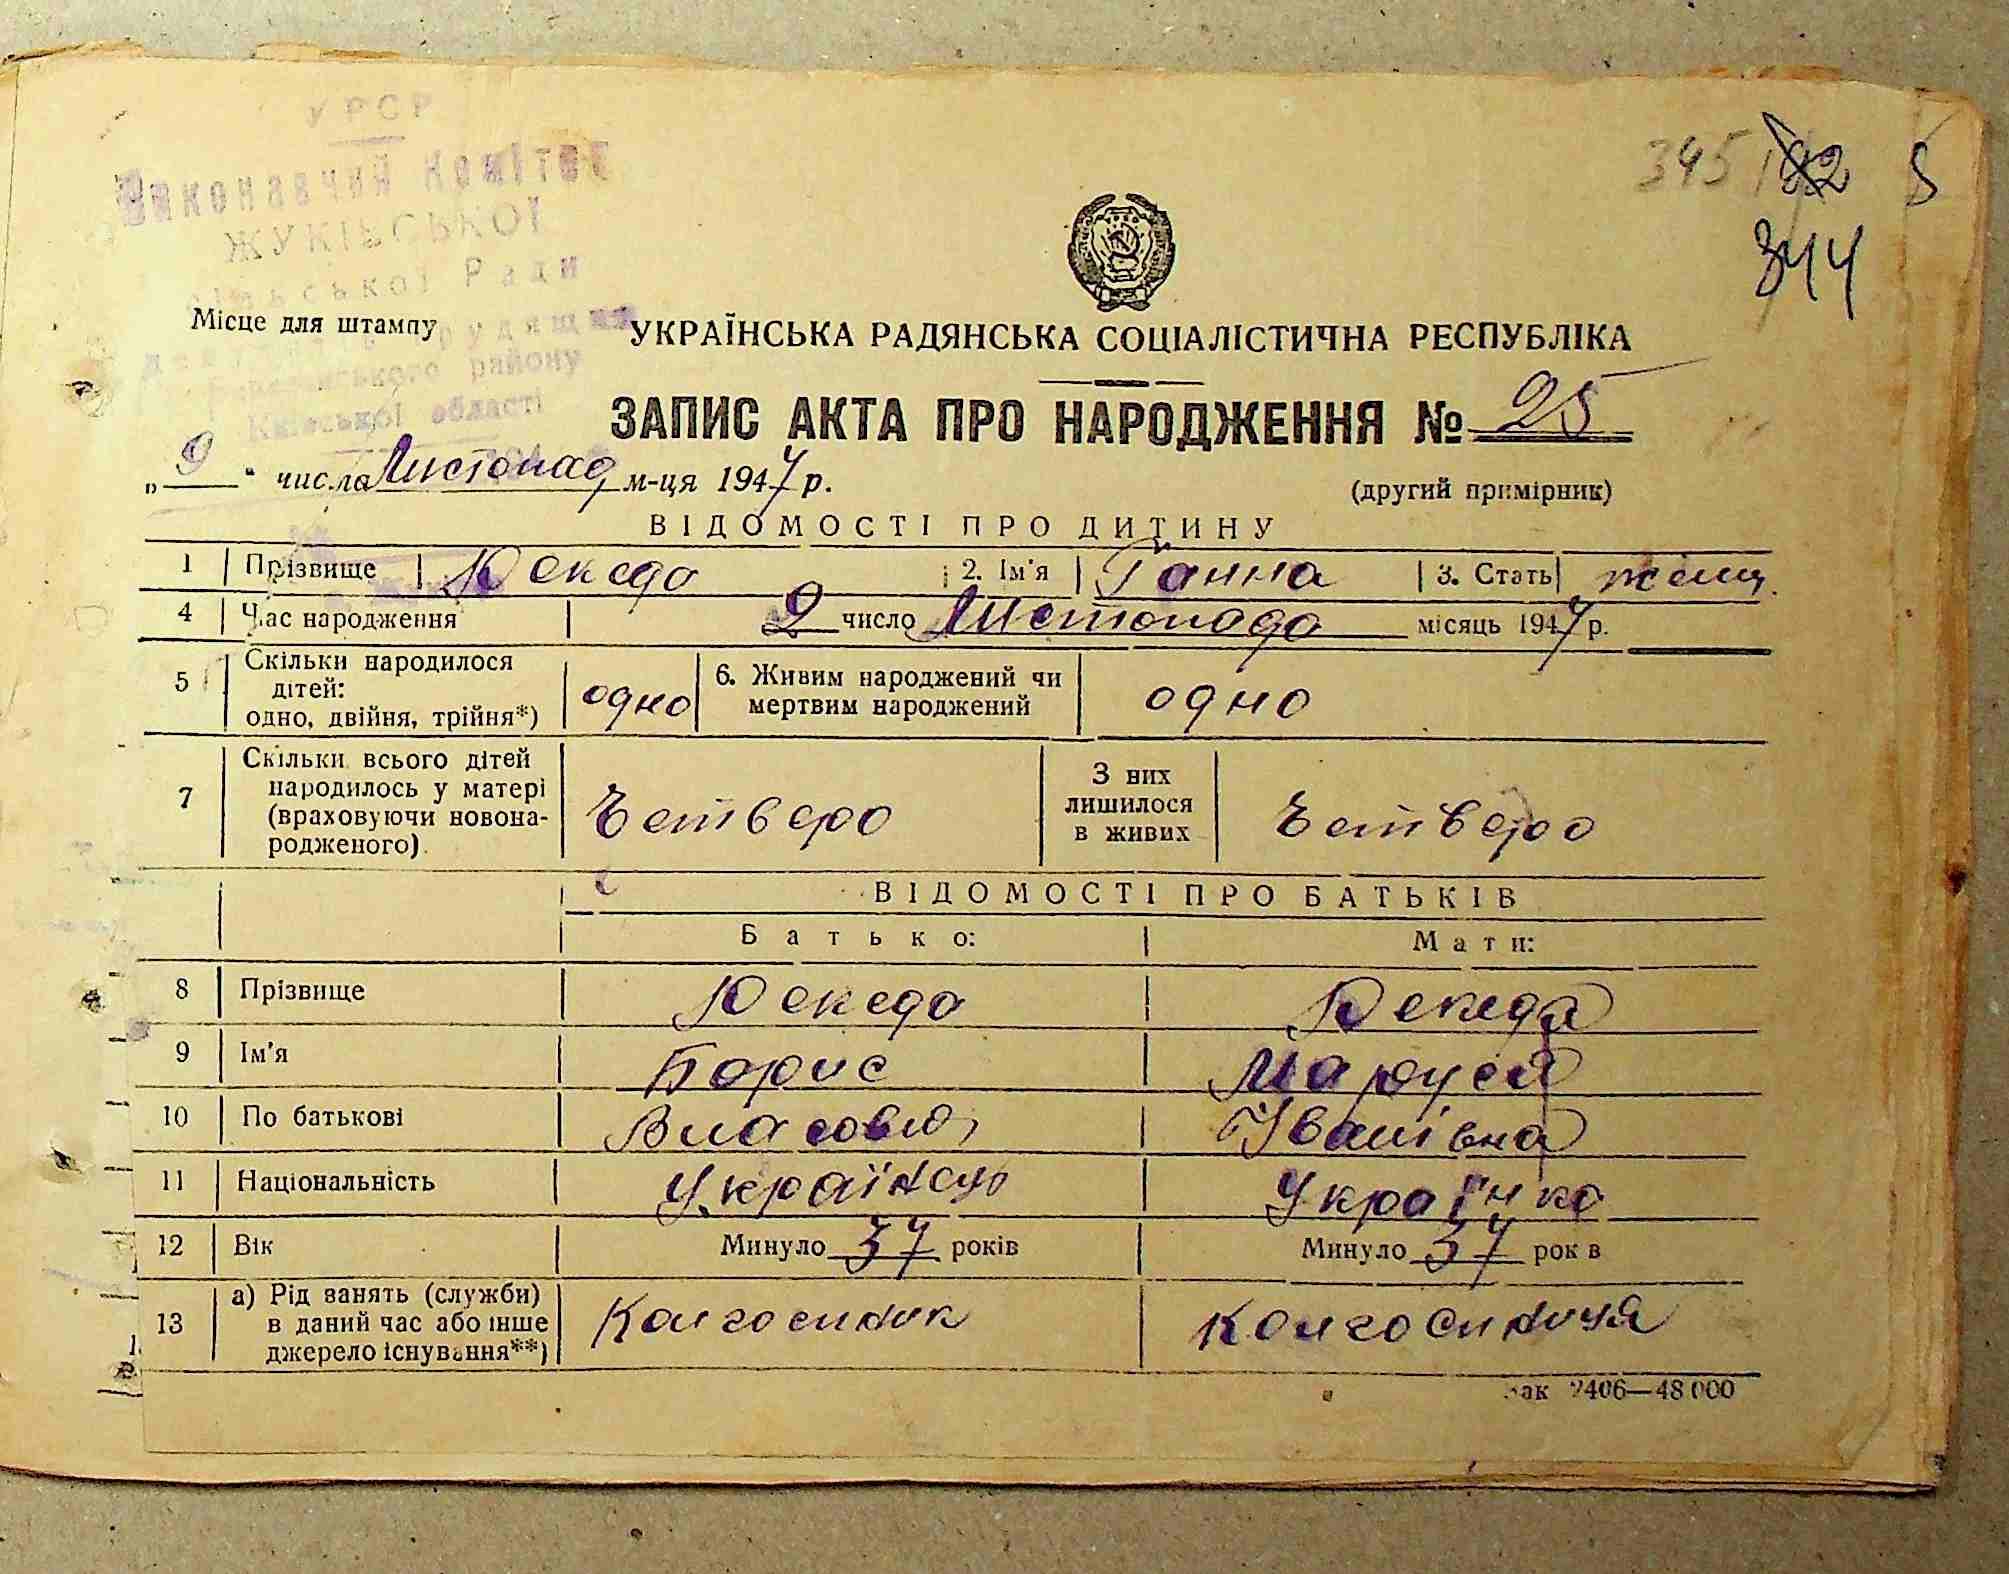 УРСР
Виконавчий Комітет
ЖУКІВСЬКОЇ
сільської Ради
депутатів трудящих
району
Київської області
395
344
Місце для штампу
УКРАЇНСЬКА РАДЯНСЬКА СОЦІАЛІСТИЧНА РЕСПУБЛІКА
ЗАПИС АКТА ПРО НАРОДЖЕННЯ № 25
„9“ числа Листопад м-ця 1947 р.
(другий примірник)
ВІДОМОСТІ ПРО ДИТИНУ
1 Прізвище 2. Ім'я Ганна 3. Стать женщ.
4 Час народження 9 число Листопада місяць 1947 р.
5 Скільки народилося дітей: одно, двійня, трійня*) одно 6. Живим народжений чи мертвим народжений одно
7 Скільки всього дітей народилось у матері (враховуючи новонародженого). Четверо З них лишилося в живих Четверо
ВІДОМОСТІ ПРО БАТЬКІВ
Батько: Мати:
8 Прізвище
9 Ім'я Борис Маруся
10 По батькові Власович Іванівна
11 Національність Українець Українка
12 Вік Минуло 37 років Минуло 37 рок в
13 а) Рід занять (служби) в даний час або інше джерело існування**) Колгоспник Колгоспниця
Зак 2406—48 000